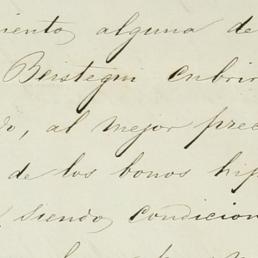 iento alguna de
Beistegui cubrir
do, al mejor prec
de los bonos hip
siendo condicion